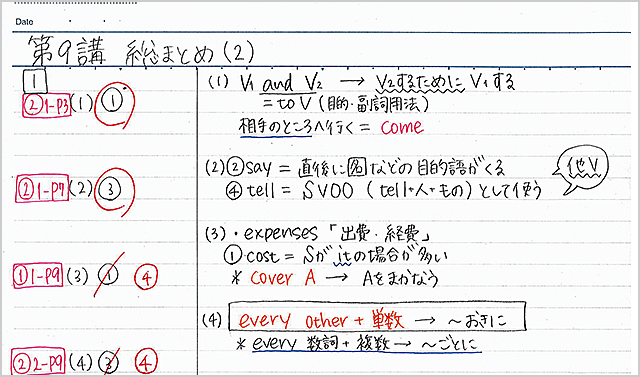 Date
第9講 総まとめ(2)
1
②1-P3 (1) ①
(1) V1 and V2 → V2するために V1する
= to V (目的・副詞用法)
相手のところへ行く = come
②1-P7 (2) ③
(2) ② say = 直後に名などの目的語がくる
④ tell = SVOO (tell+人+もの) として使う
他V
(3)・expenses 「出費・経費」
① cost = Sがitの場合が多い
①1-P9 (3) ① ④
* cover A → Aをまかなう
(4) every other + 単数 → ~おきに
* every 数詞 + 複数 → ~ごとに
②2-P9 (4) ③ ④